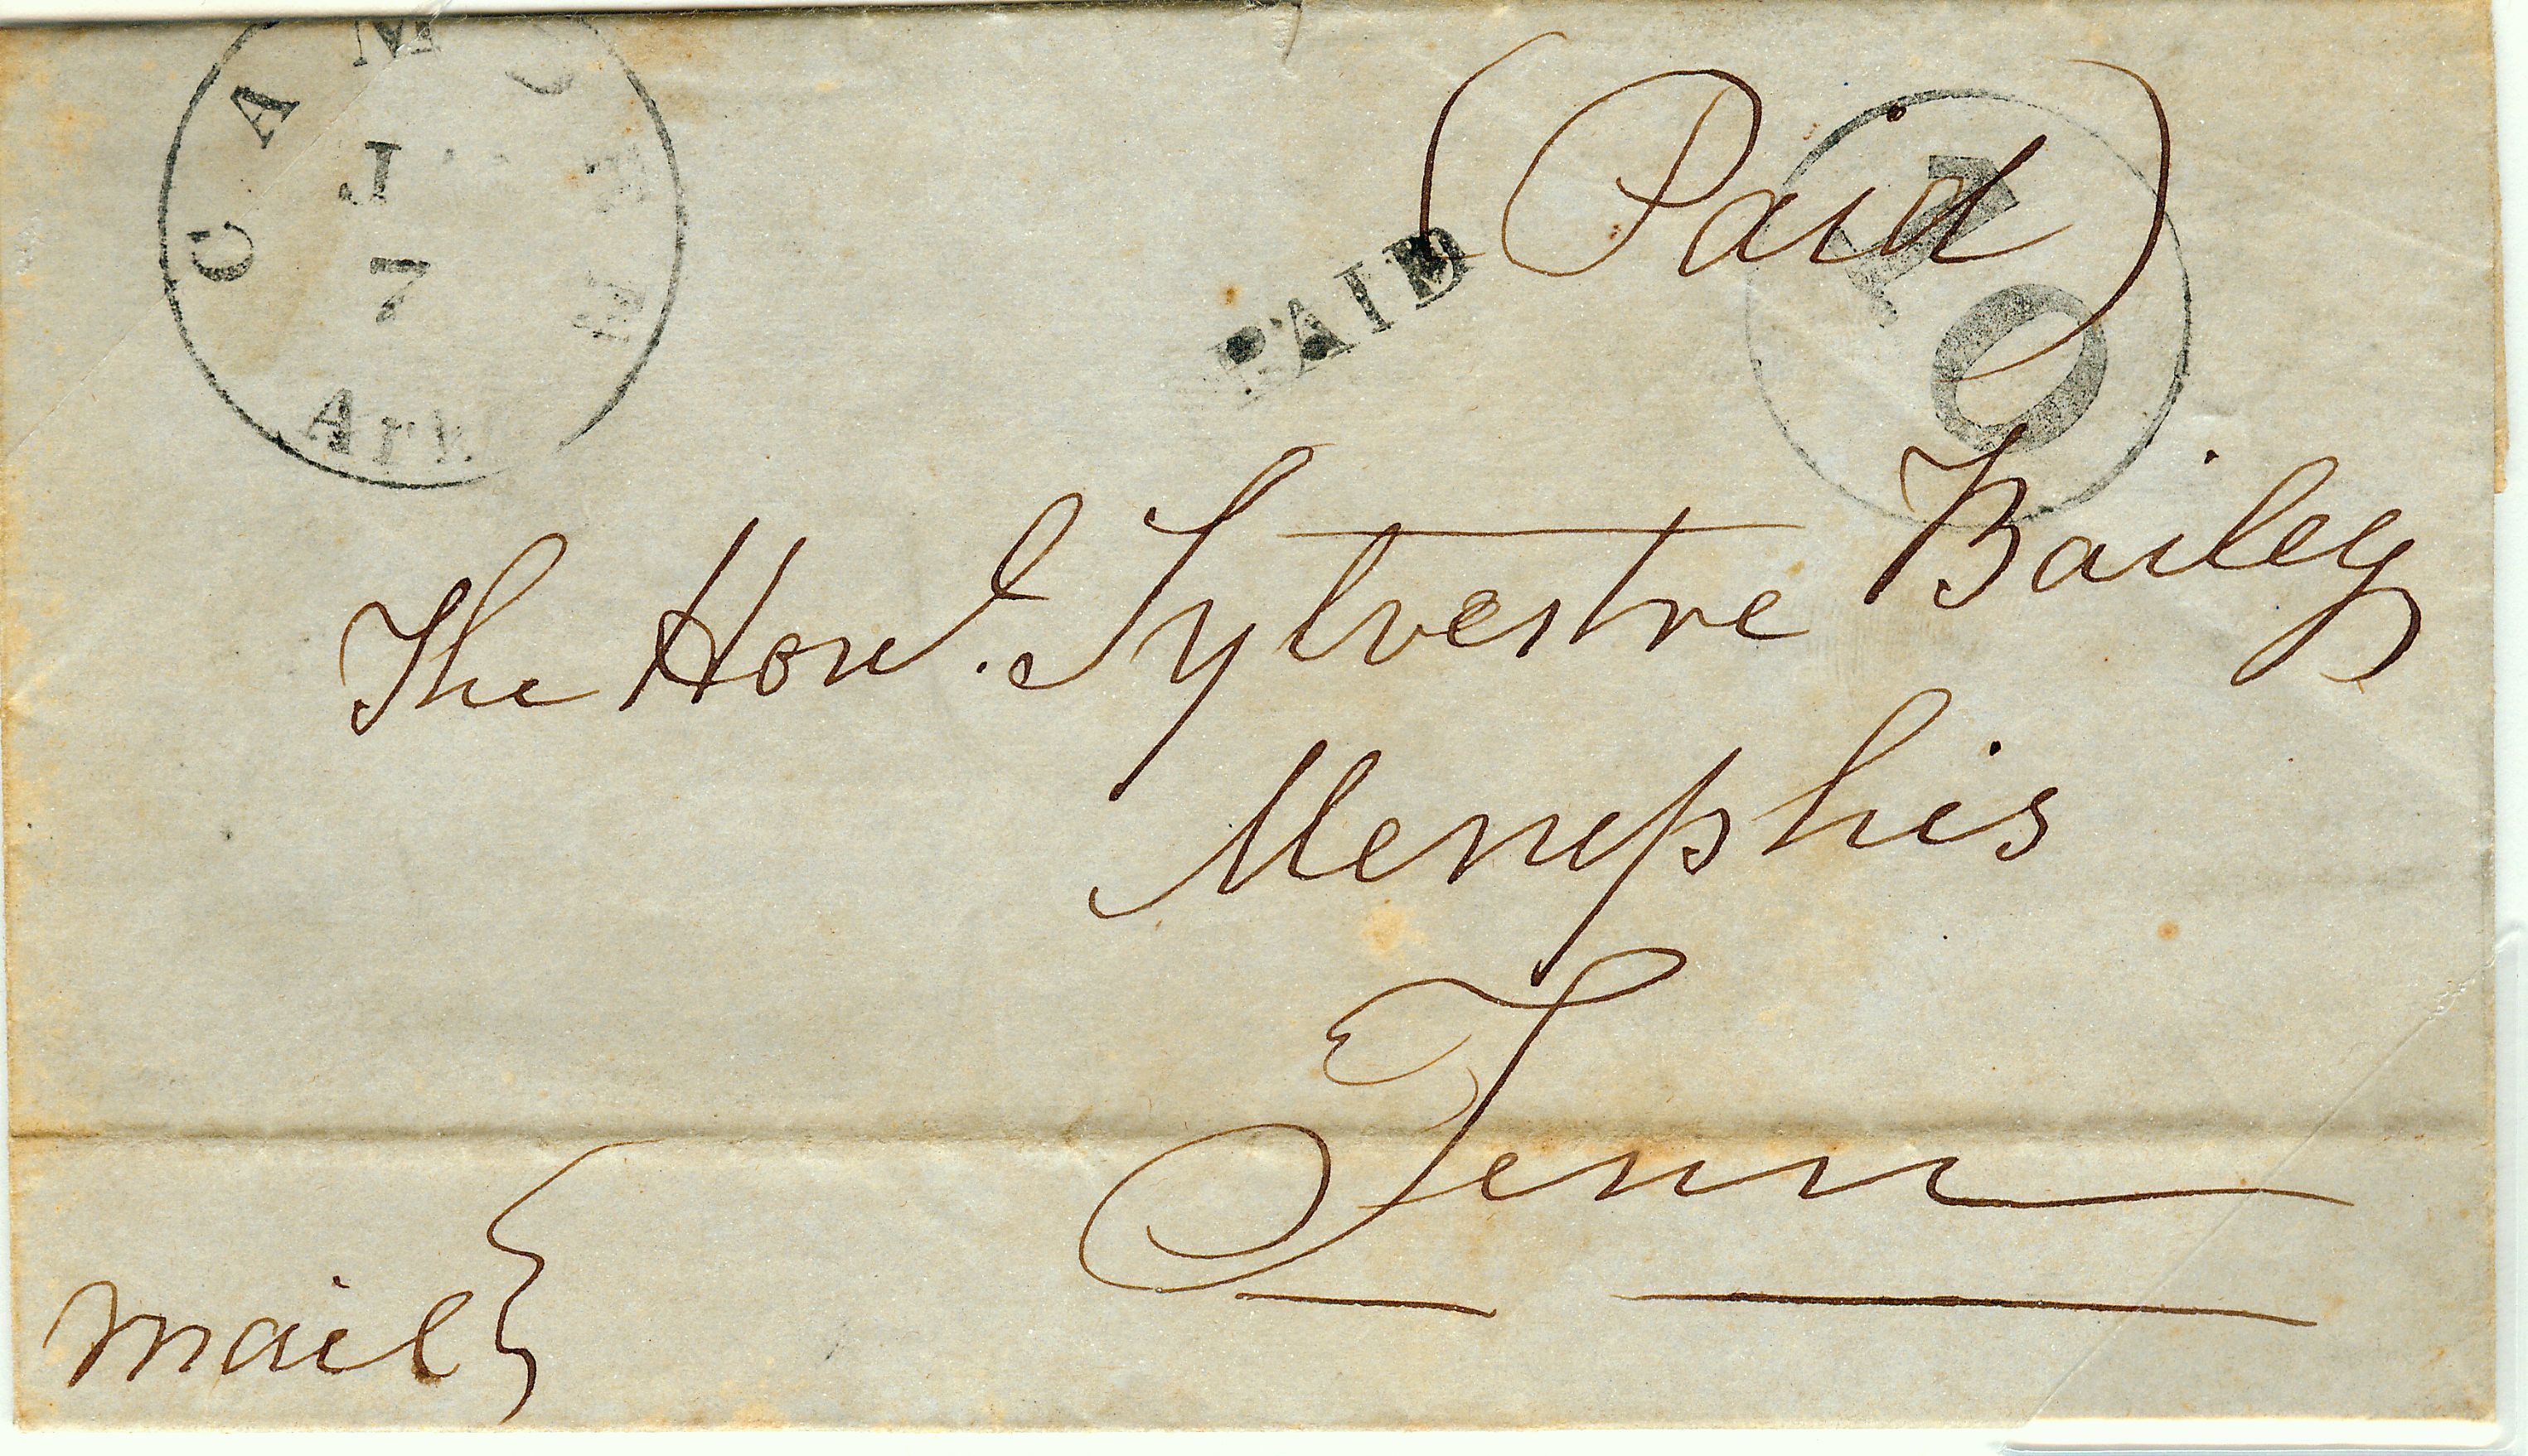 CAMDEN
J
7
Ark
(Paid)
PAID
10
The Honl. Sylvestre Bailey
Memphis
Tenn
mail